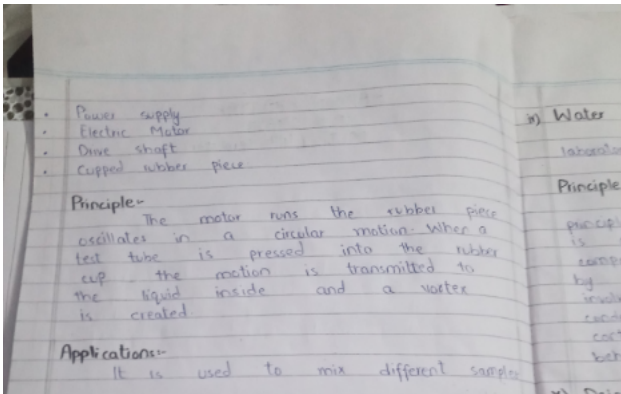 • Power supply
• Electric Motor
• Drive shaft
• Cupped rubber piece
Principle:-
The motor runs the rubber piece
oscillates in a circular motion. When a
test tube is pressed into the rubber
cup the motion is transmitted to
the liquid inside and a vortex
is created.
Applications:-
It is used to mix different samples
iv) Water
Principle
is
by